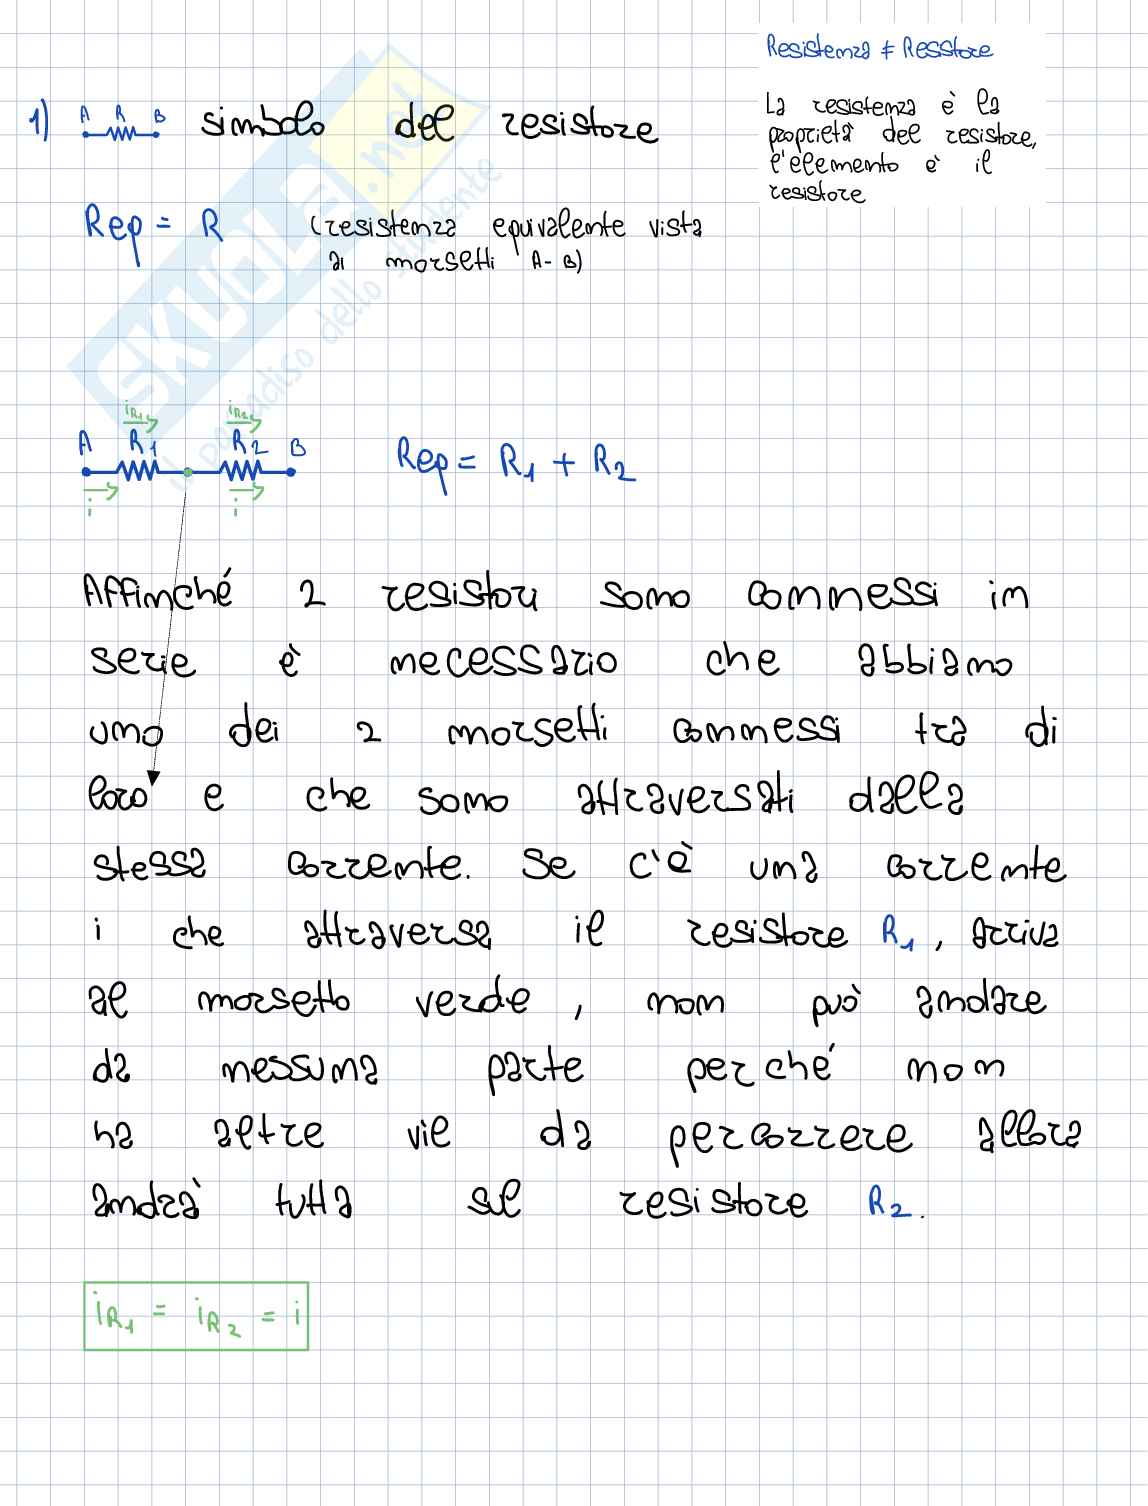 Resistenza ≠ Resstore
La resistenza è la
proprietà del resistore,
l'elemento è il
resistore
1) A R B simbolo del resistore
Rep = R (resistenza equivalente vista
ai morsetti A-B)
iR1 iR2
A R1 R2 B Rep = R1 + R2
i i
Affinché 2 resistori sono connessi in
serie è necessario che abbiano
uno dei 2 morsetti connessi tra di
loro e che sono attraversati dalla
stessa corrente. Se c'è una corrente
i che attraversa il resistore R1, arriva
al morsetto verde, non può andare
da nessuna parte perché non
ha altre vie da percorrere allora
andrà tutta sul resistore R2.
iR1 = iR2 = i
SKUOLA.net
il paradiso dello studente